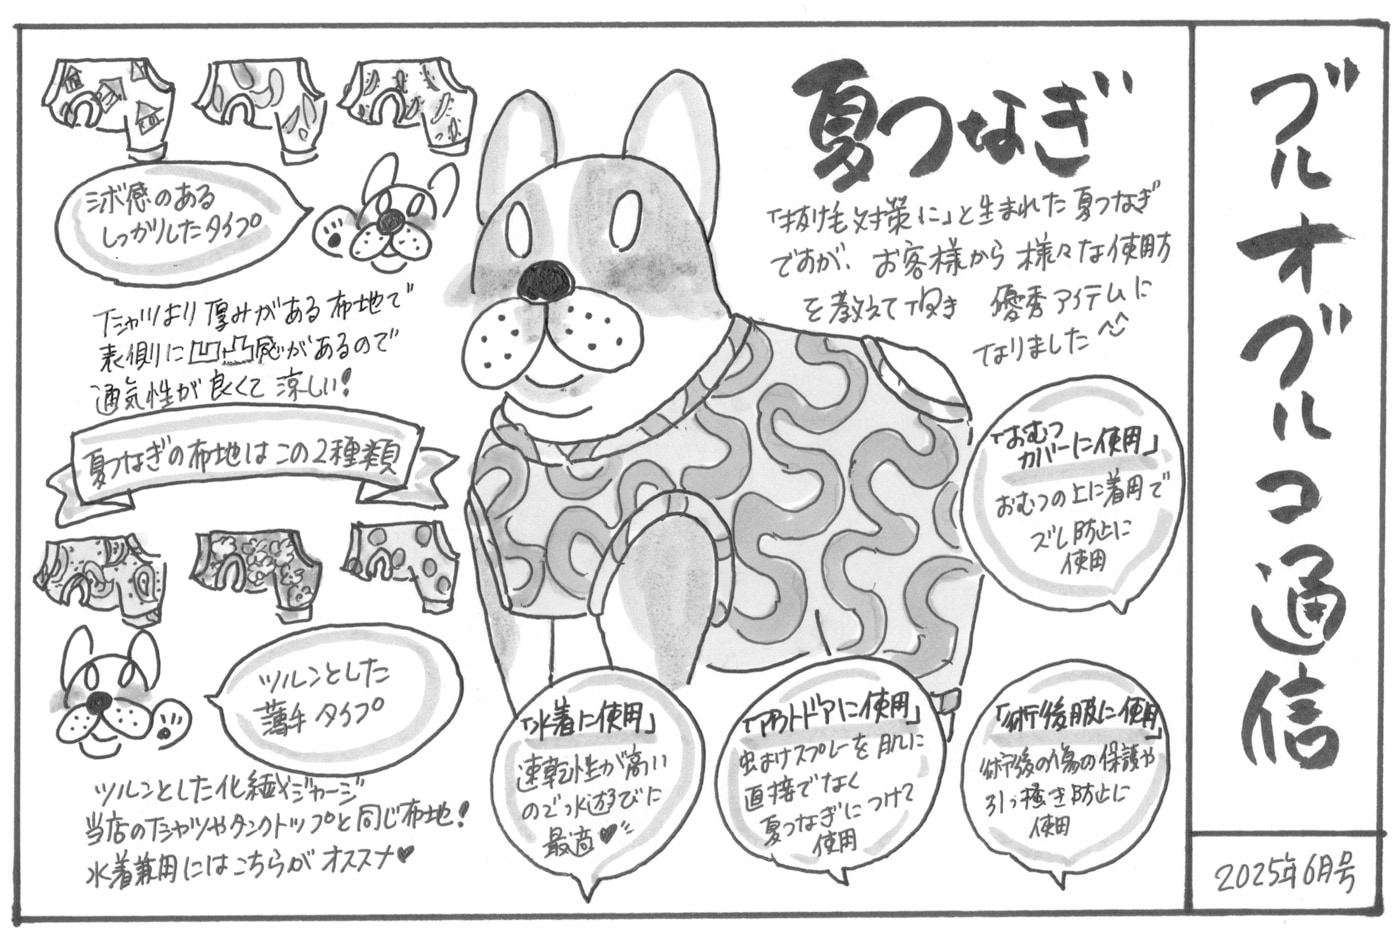 ブルオブルコ通信
2025年6月号
夏つなぎ
「抜け毛対策に」と生まれた夏つなぎ
ですが、お客様から様々な使用方
を教えて頂き 優秀アイテムに
なりました
「おむつ
カバーに使用」
おむつの上に着用で
ズレ防止に
使用
「術後服に使用」
術後の傷の保護や
引っ掻き防止に
使用
「アウトドアに使用」
虫よけスプレーを肌に
直接でなく
夏つなぎにつけて
使用
「水着に使用」
速乾性が高い
ので水遊びに
最適♥
シボ感のある
しっかりしたタイプ
Tシャツより厚みがある布地で
表側に凹凸感があるので
通気性が良くて涼しい!
夏つなぎの布地はこの2種類
ツルンとした
薄手タイプ
ツルンとした化繊×ジャージ
当店のTシャツやタンクトップと同じ布地!
水着兼用にはこちらがオススメ♥